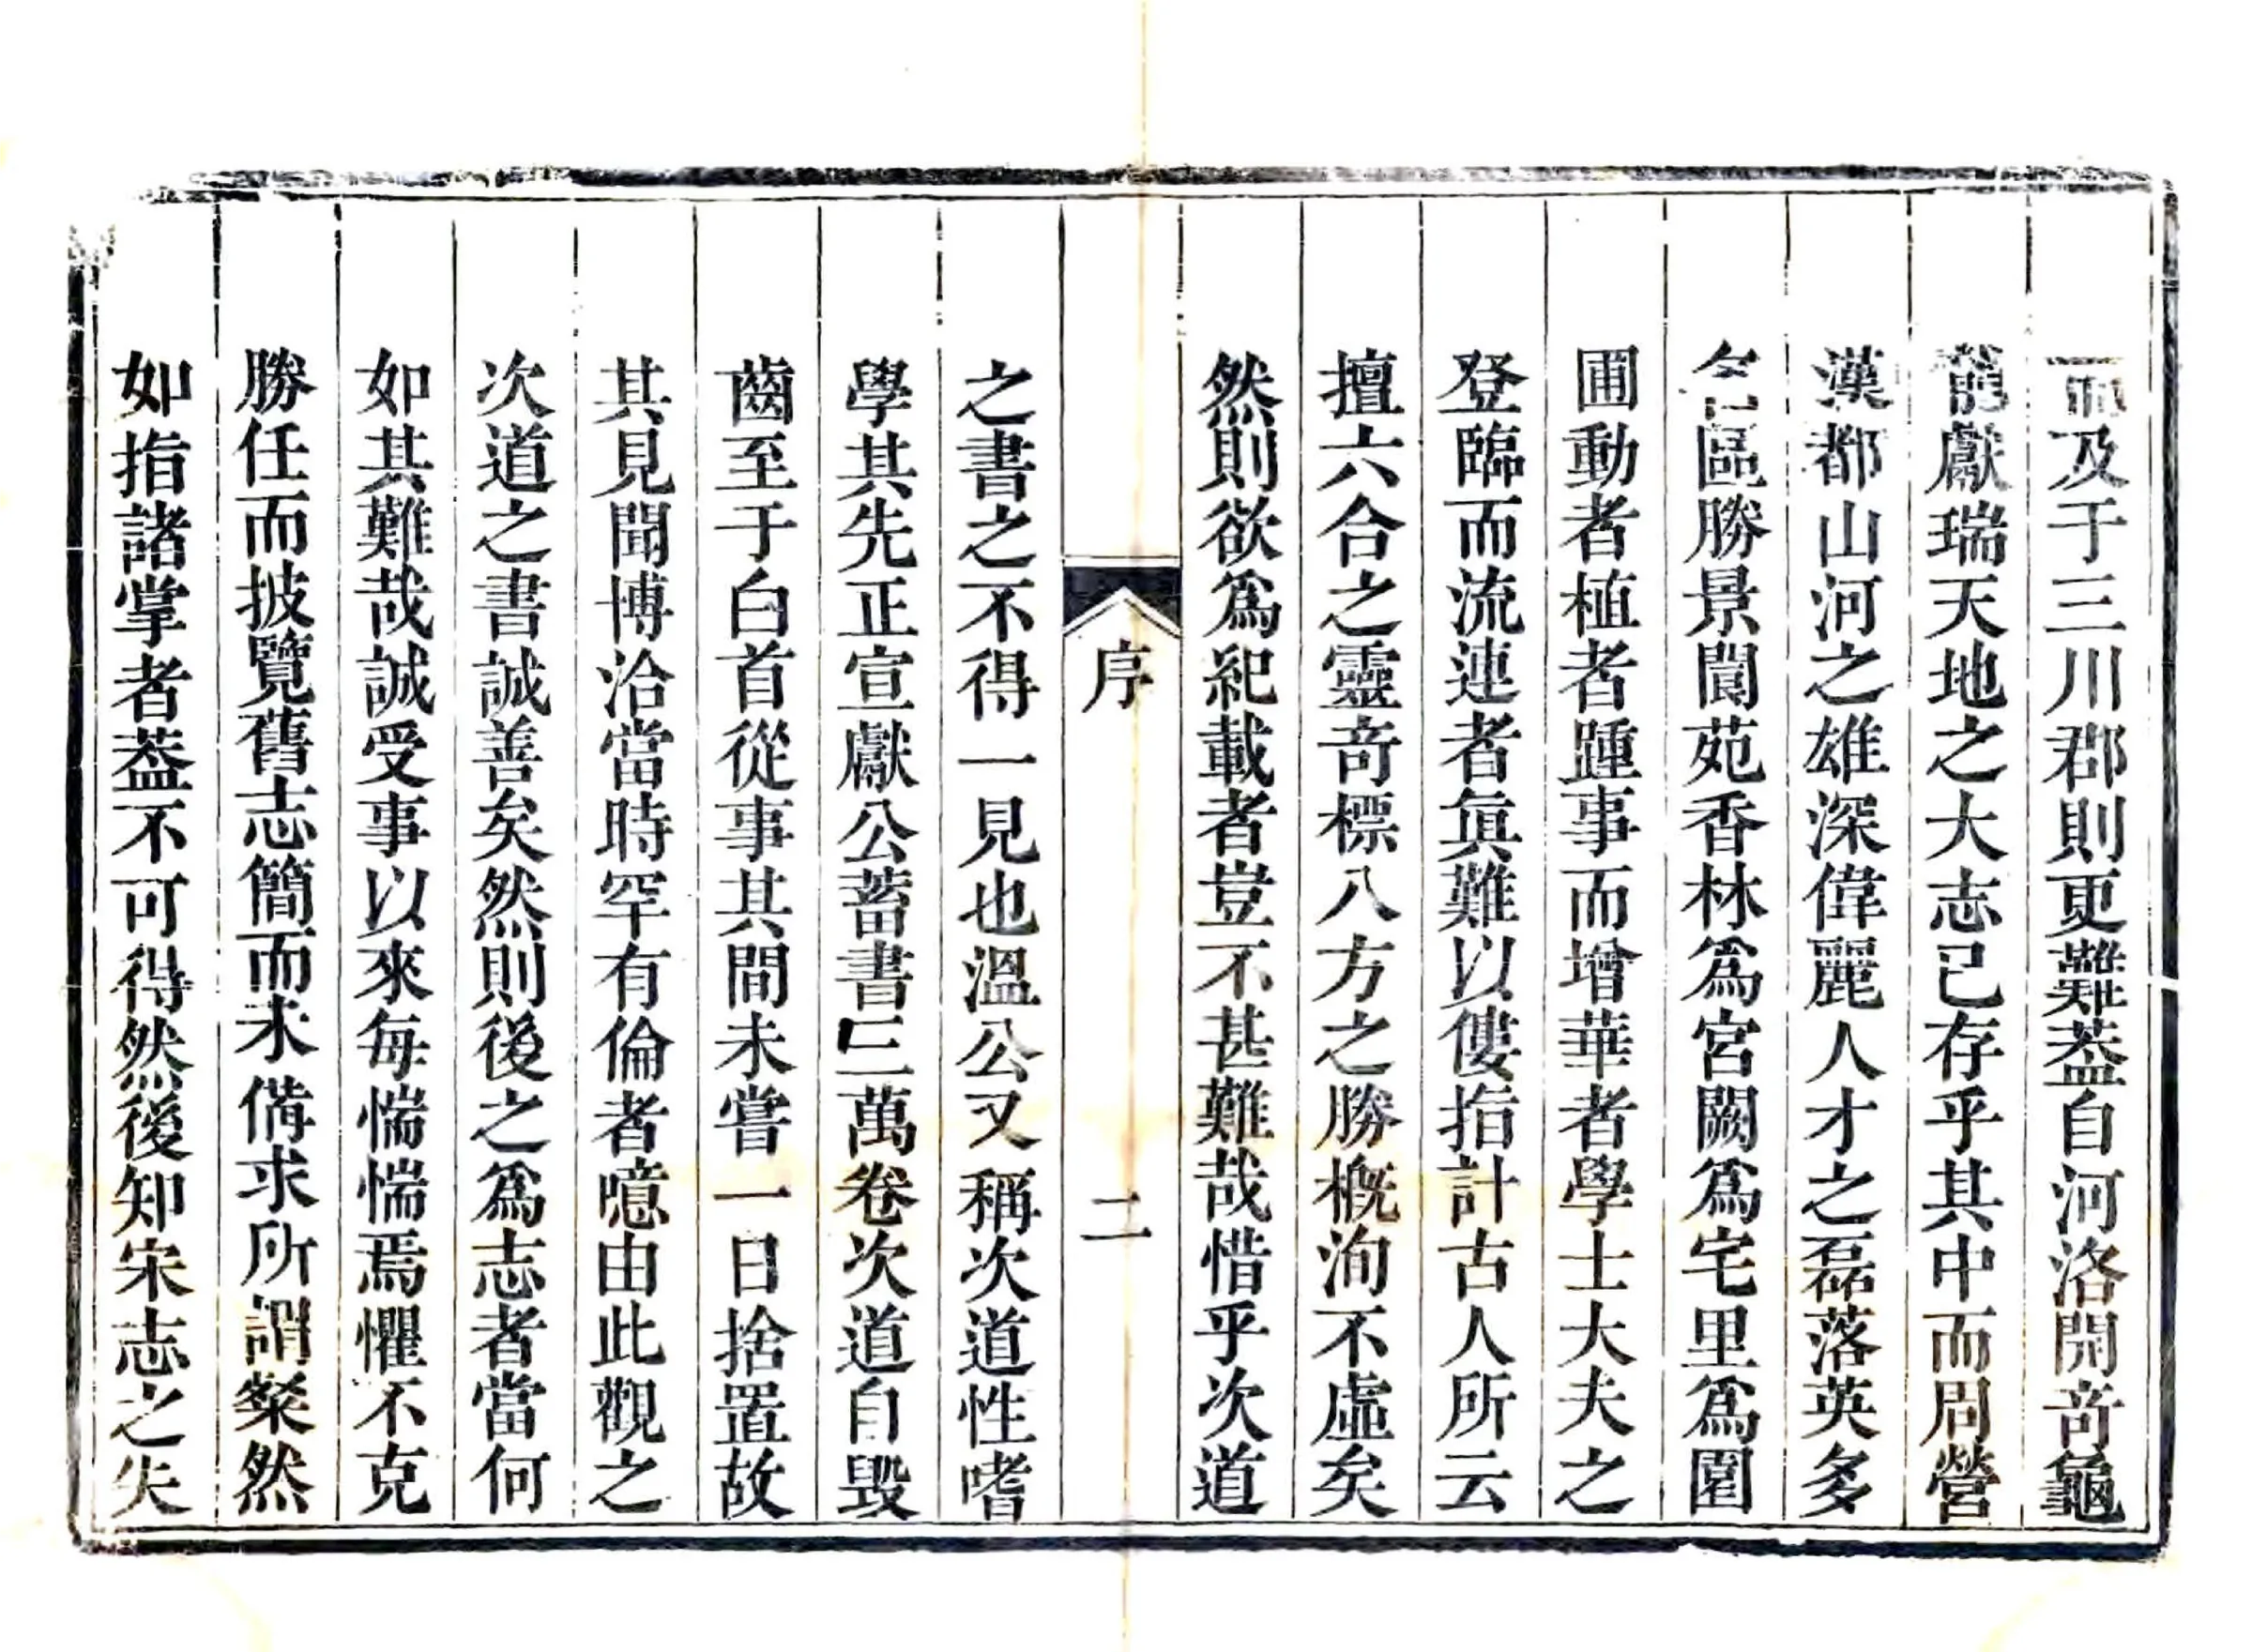 而及于三川郡則更難葢自河洛開竒龜
龍獻瑞天地之大志已存乎其中而周營
漢都山河之雄深偉麗人才之磊落英多
名區勝景閬苑香林爲宮闕爲宅里爲園
圃動者植者踵事而增華者學士大夫之
登臨而流連者眞難以僂指計古人所云
擅六合之靈竒標八方之勝槪洵不虛矣
然則欲爲紀載者豈不甚難哉惜乎次道
序
二
之書之不得一見也溫公又稱次道性嗜
學其先正宣獻公蓄書三萬卷次道自毁
齒至于白首從事其間未嘗一日捨置故
其見聞博洽當時罕有倫者噫由此觀之
次道之書誠善矣然則後之爲志者當何
如其難哉誠受事以來每惴惴焉懼不克
勝任而披覽舊志簡而未備求所謂粲然
如指諸掌者葢不可得然後知宋志之失